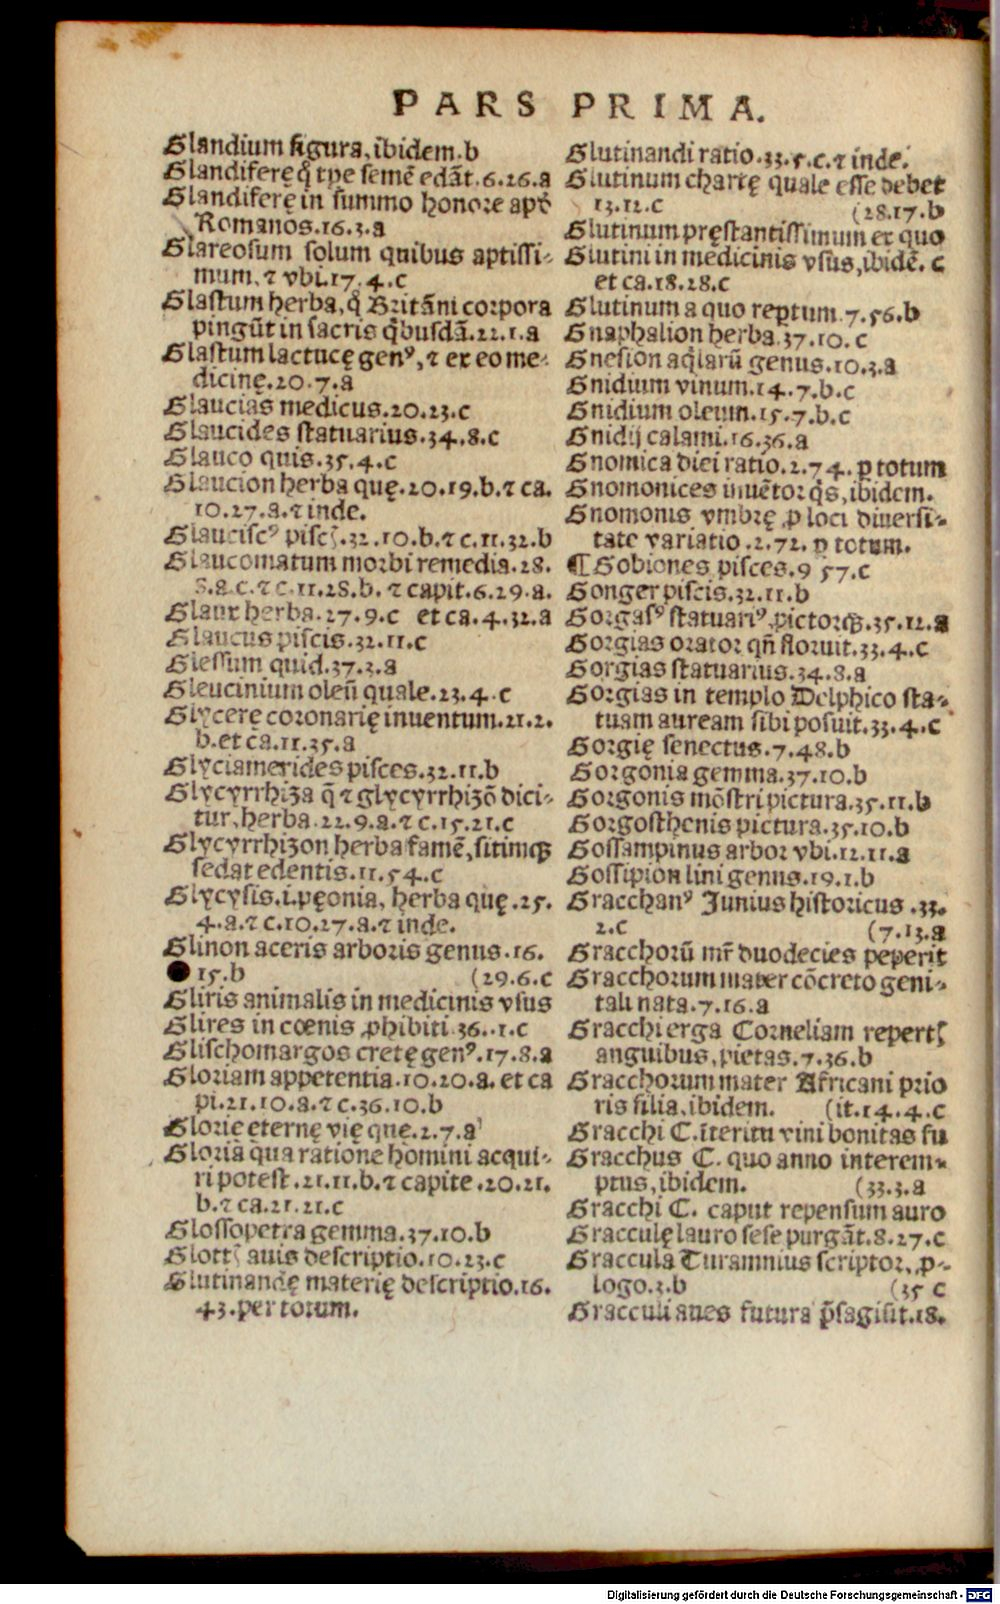 PARS PRIMA.
Glandium figura, ibidem.b
Glandiferę q̃ tpe semē edāt.6.26.a
Glandiferę in summo honore apđ
Romanos.16.3.a
Glareosum solum quibus aptissi-
mum.⁊ vbi.17.4.c
Glastum herba, q̃ Britāni corpora
pingūt in sacris q̃busdā.22.1.a
Glastum lactucę genꝰ, ⁊ ex eo me-
dicinę.20.7.a
Glaucias medicus.20.23.c
Glaucides statuarius.34.8.c
Glauco quis.35.4.c
Glaucion herba quę.20.19.b.⁊ ca.
10.27.a.⁊ inde.
Glauciscꝰ piscꝭ.32.10.b.⁊ c.11.32.b
Glaucomatum morbi remedia.28.
8.a.c.⁊ c.11.28.b.⁊ capit.6.29.a.
Glaux herba.27.9.c et ca.4.32.a
Glaucus piscis.32.11.c
Glessum quid.37.3.a
Gleucinium oleū quale.23.4.c
Glycerę coronarię inuentum.21.2.
b.et ca.11.35.a
Glyciamerides pisces.32.11.b
Glycyrrhiza q̄ ⁊ glycyrrhizō dici-
tur, herba.22.9.a.⁊ c.15.21.c
Glycyrrhizon herba famē, sitimqꝫ
sedat edentis.11.54.c
Glycysis.i.pęonia, herba quę.25.
4.a.⁊ c.10.27.a.⁊ inde.
Glinon aceris arboris genus.16.
15.b (29.6.c
Gliris animalis in medicinis vsus
Glires in cœnis ꝓhibiti.36.1.c
Glischomargos cretę genꝰ.17.8.a
Gloriam appetentia.10.20.a. et ca
pi.21.10.a.⁊ c.36.10.b
Glorię eternę vię quę.2.7.a
Gloriā qua ratione homini acqui-
ri potest.21.11.b.⁊ capite.20.21.
b.⁊ ca.21.21.c
Glossopetra gemma.37.10.b
Glottꝭ auis descriptio.10.23.c
Glutinandę materię descriptio.16.
43.per totum.
Glutinandi ratio.33.5.c.⁊ inde.
Glutinum chartę quale esse debet
13.12.c (28.17.b
Glutinum pręstantissimum ex quo
Glutini in medicinis vsus, ibidē. c
et ca.18.28.c
Glutinum a quo reptum.7.56.b
Gnaphalion herba.37.10.c
Gnesion aq̃larū genus.10.3.a
Gnidium vinum.14.7.b.c
Gnidium oleum.15.7.b.c
Gnidij calami.16.36.a
Gnomica diei ratio.2.74.ꝑ totum
Gnomonices inuētor q̃s, ibidem.
Gnomonis vmbrę ꝓ loci diuersi-
tate variatio.2.72.ꝑ totum.
¶Gobiones pisces.9 57.c
Gonger piscis.32.11.b
Gorgasꝰ statuariꝰ, pictorqꝫ.35.12.a
Gorgias orator qn̄ floruit.33.4.c
Gorgias statuarius.34.8.a
Gorgias in templo Delphico sta-
tuam auream sibi posuit.33.4.c
Gorgię senectus.7.48.b
Gorgonia gemma.37.10.b
Gorgonis mōstri pictura.35.11.b
Gorgosthenis pictura.35.10.b
Gossampinus arbor vbi.12.11.a
Gossipion lini genus.19.1.b
Gracchanꝰ Junius historicus.33.
2.c (7.13.a
Gracchorū mr̄ duodecies peperit
Gracchorum mater cōcreto geni-
tali nata.7.16.a
Gracchi erga Corneliam repertꝭ
anguibus, pietas.7.36.b
Gracchorum mater Africani prio
ris filia, ibidem. (it.14.4.c
Gracchi C. īteritu vini bonitas fu
Gracchus C. quo anno interem-
ptus, ibidem. (33.3.a
Gracchi C. caput repensum auro
Gracculę lauro sese purgāt.8.27.c
Graccula Turamnius scriptor, ꝓ-
logo.3.b (35 c
Gracculi aues futura p̄sagiūt.18.
Digitalisierung gefördert durch die Deutsche Forschungsgemeinschaft - DFG